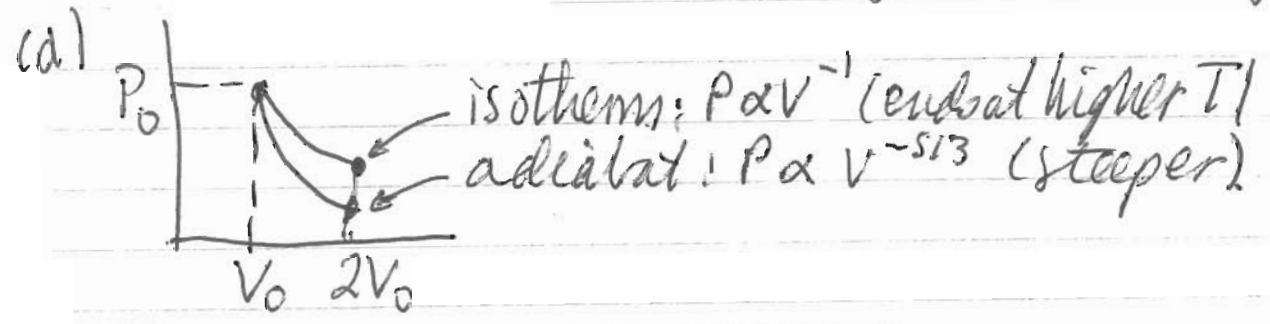 (d)
P₀
isotherm: P ∝ V⁻¹ (ends at higher T)
adiabat: P ∝ V^(-5/3) (steeper)
V₀ 2V₀